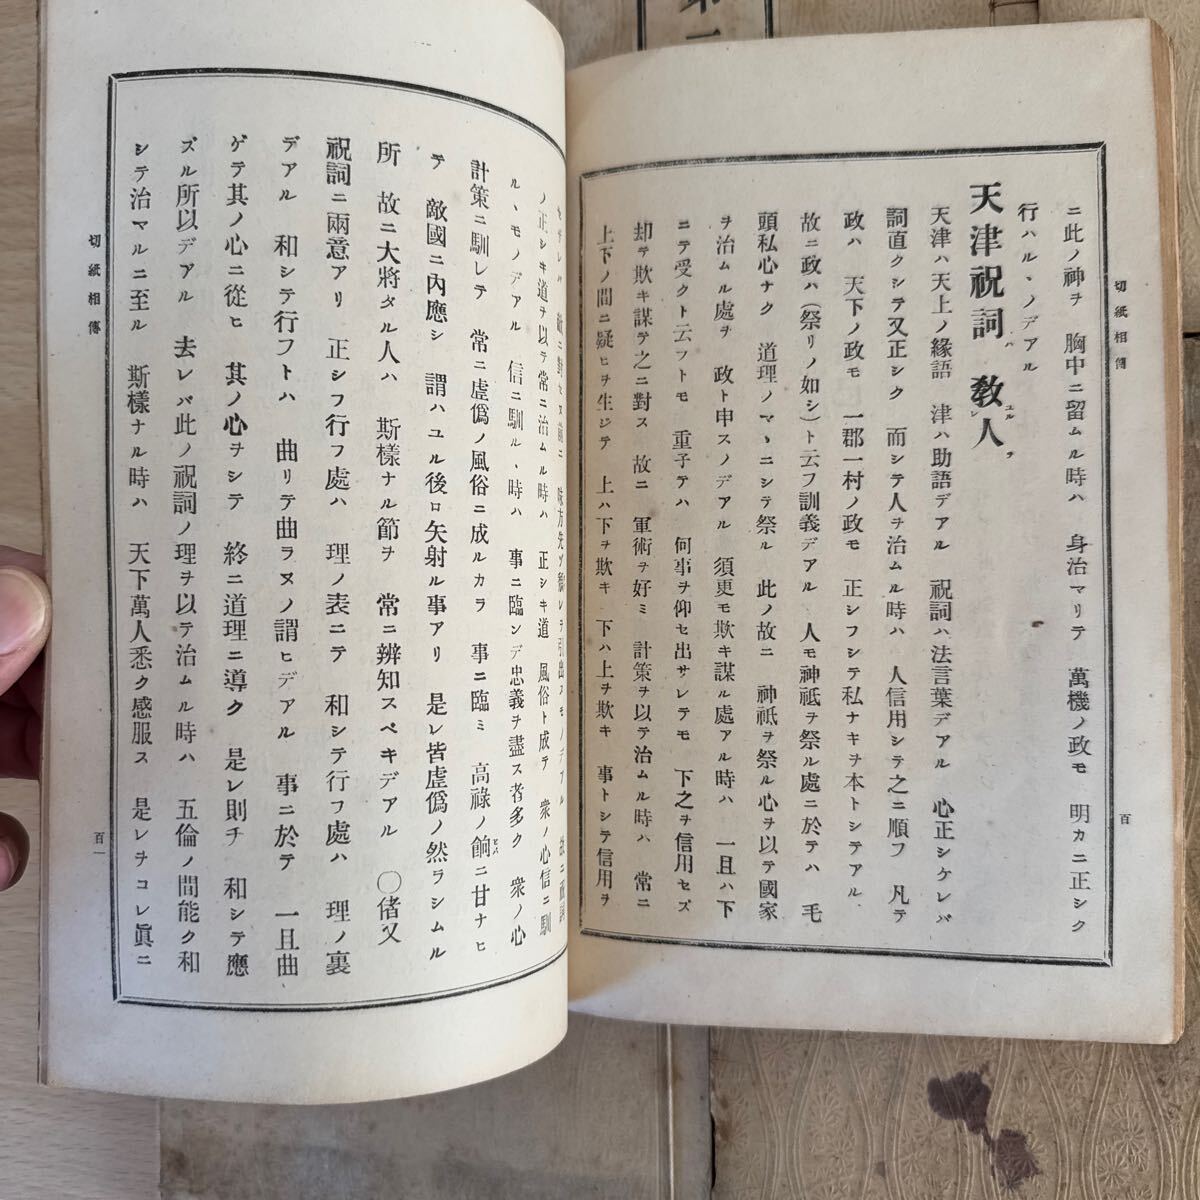 切紙相傳
百
ニ此ノ神ヲ　胸中ニ留ムル時ハ　身治マリテ　萬機ノ政モ　明カニ正シク
行ハル、ノデアル
天津祝詞ハ　敎ユルレ人ヲ
天津ハ天上ノ緣語　津ハ助語デアル　祝詞ハ法言葉デアル　心正シケレバ
詞直クシテ又正シク　而シテ人ヲ治ムル時ハ　人信用シテ之ニ順フ　凡テ
政ハ　天下ノ政モ　一郡一村ノ政モ　正シフシテ私ナキヲ本トシテアル
故ニ政ハ（祭リノ如シ）ト云フ訓義デアル　人モ神祇ヲ祭ル處ニ於テハ　毛
頭私心ナク　道理ノマヽニシテ祭ル　此ノ故ニ　神祇ヲ祭ル心ヲ以テ國家
ヲ治ムル處ヲ　政ト申スノデアル　須更モ欺キ謀ル處アル時ハ　一旦ハ下
ニテ受クト云フトモ　重子テハ　何事ヲ仰セ出サレテモ　下之ヲ信用セズ
却テ欺キ謀テ之ニ對ス　故ニ　軍術ヲ好ミ　計策ヲ以テ治ムル時ハ　常ニ
上下ノ間ニ疑ヒヲ生ジテ　上ハ下ヲ欺キ　下ハ上ヲ欺キ　事トシテ信用ヲ
味方先ヅ
引出スモノデアル
ノ正シキ道ヲ以テ常ニ治ムル時ハ　正シキ道　風俗ト成テ　衆ノ心信ニ馴
ル、モノデアル　信ニ馴ル、時ハ　事ニ臨ンデ忠義ヲ盡ス者多ク　衆ノ心
計策ニ馴レテ　常ニ虛僞ノ風俗ニ成ルカラ　事ニ臨ミ　高祿ノ餉ニ甘ナヒ
テ　敵國ニ內應シ　謂ハユル後ロ矢射ル事アリ　是レ皆虛僞ノ然ラシムル
所　故ニ大將タル人ハ　斯樣ナル節ヲ　常ニ辨知スベキデアル　〇偖又
祝詞ニ兩意アリ　正シフ行フ處ハ　理ノ表ニテ　和シテ行フ處ハ　理ノ裏
デアル　和シテ行フトハ　曲リテ曲ラヌノ謂ヒデアル　事ニ於テ　一旦曲
ゲテ其ノ心ニ從ヒ　其ノ心ヲシテ　終ニ道理ニ導ク　是レ則チ　和シテ應
ズル所以デアル　去レバ此ノ祝詞ノ理ヲ以テ治ムル時ハ　五倫ノ間能ク和
シテ治マルニ至ル　斯樣ナル時ハ　天下萬人悉ク感服ス　是レヲコレ眞ニ
切紙相傳
百一